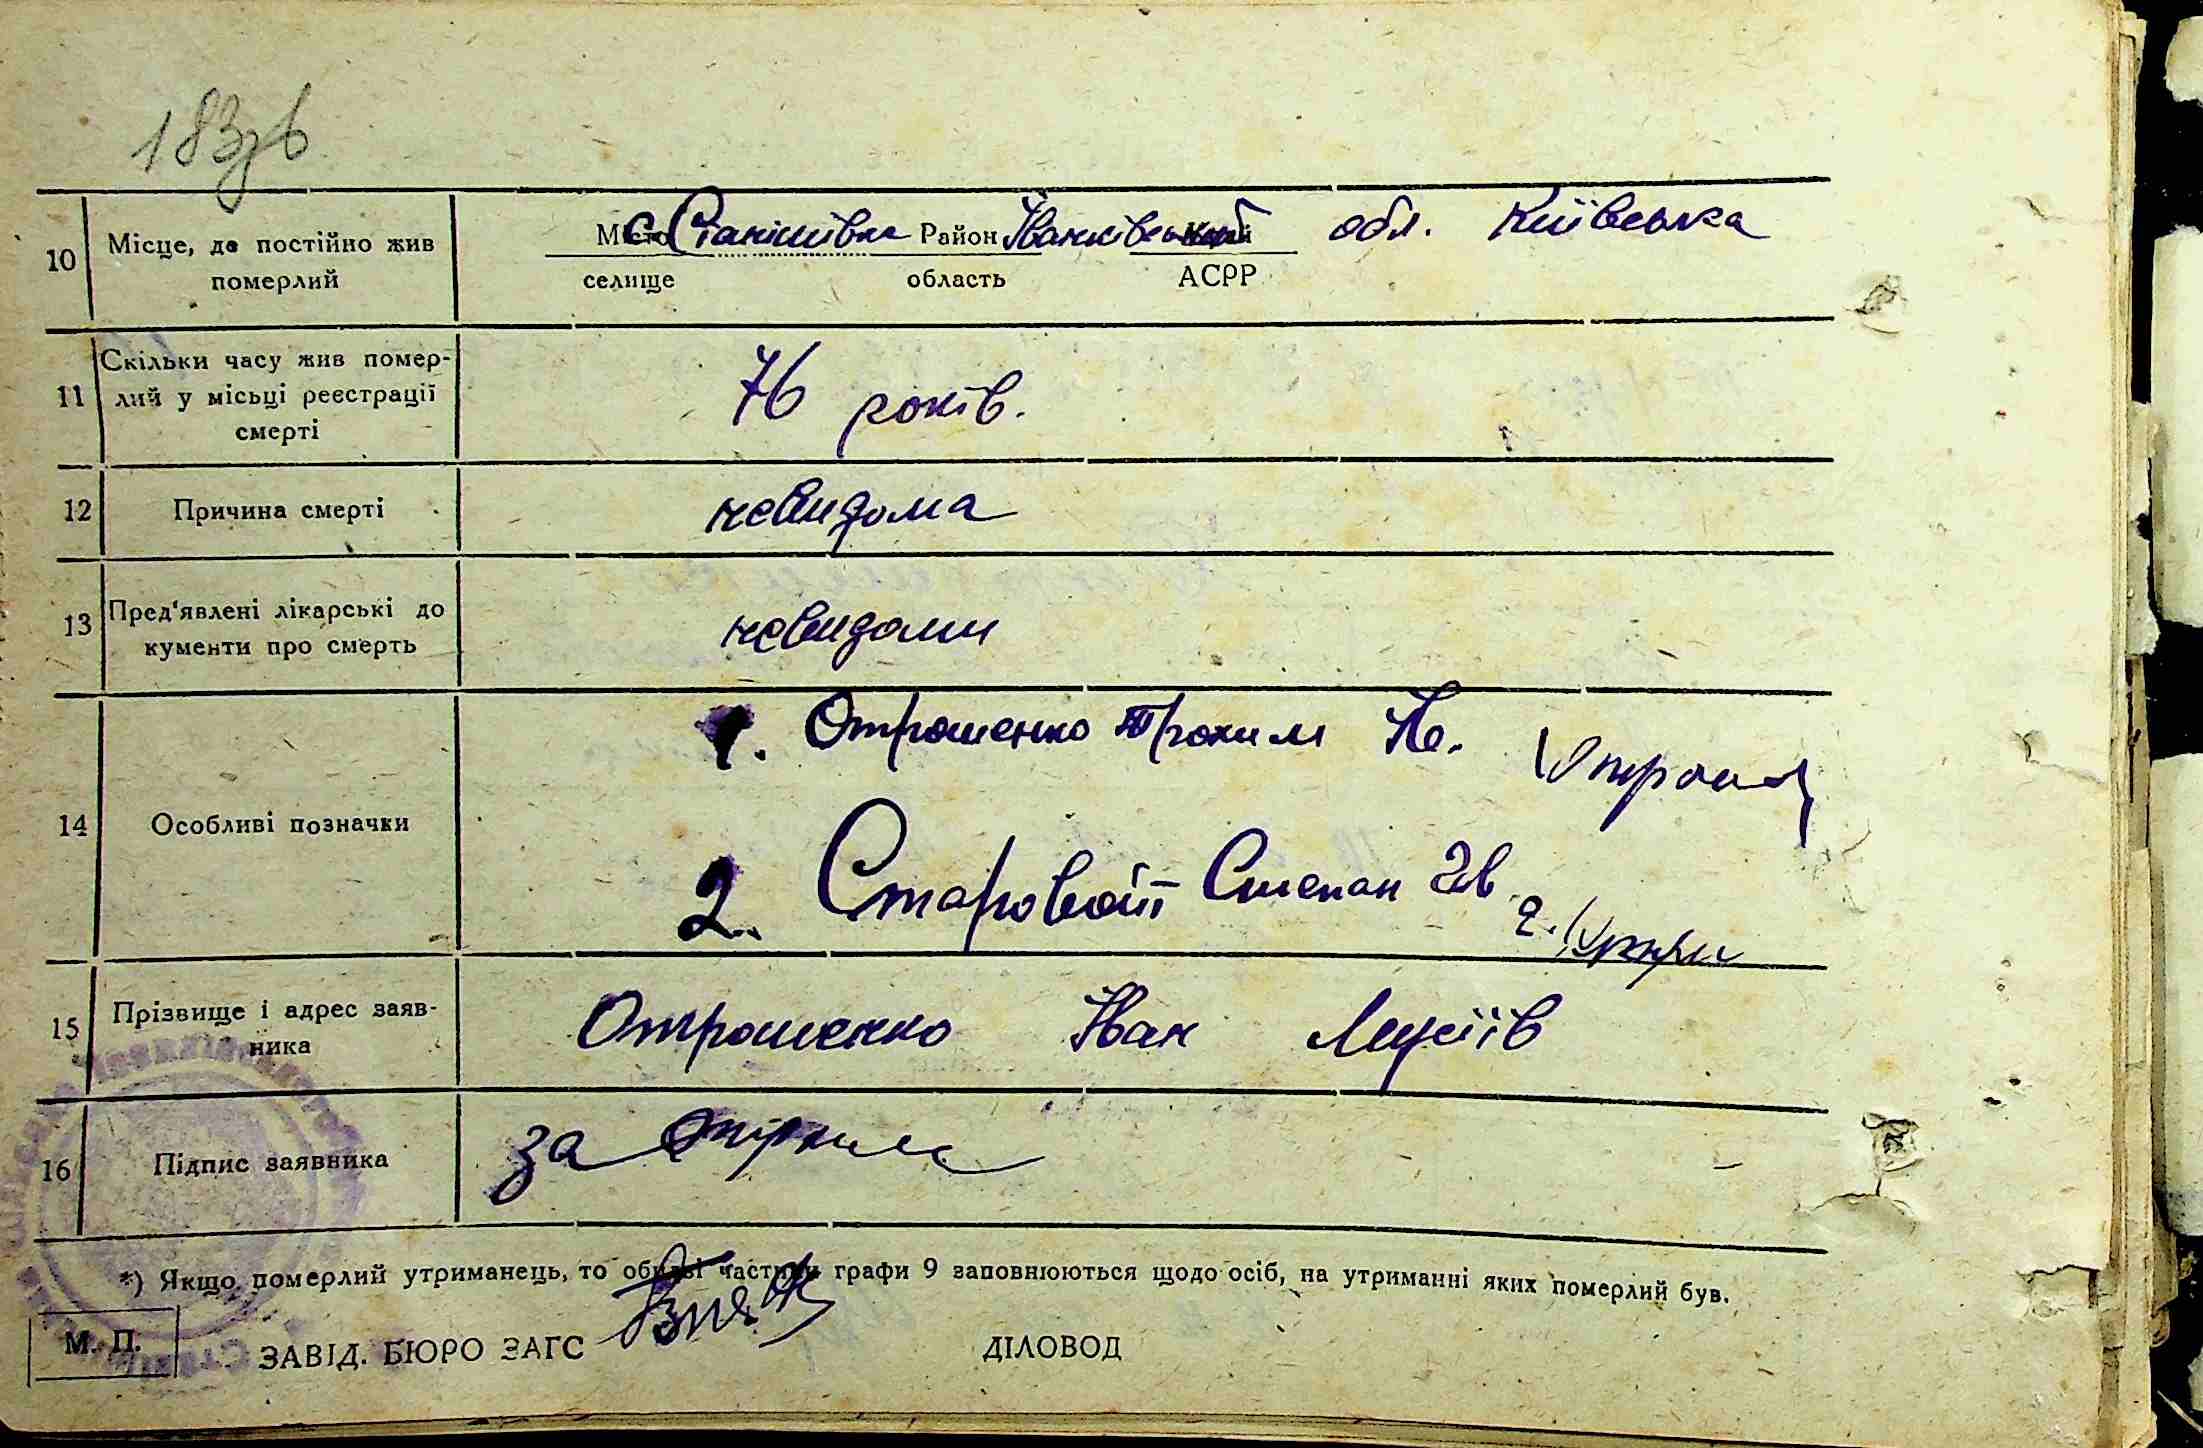 183зв
10 Місце, де постійно жив померлий
Місто с. Станішівка Район Іванківський Край обл. Київська
селище область АСРР
11 Скільки часу жив помер-
лий у місьці реєстрації
смерті
76 років.
12 Причина смерті невидома
13 Пред'явлені лікарські до
кументи про смерть
невидоми
1. Отрошенко Трохим
14 Особливі позначки
2. Старовойт Степан Ів
15 Прізвище і адрес заяв-
ника
Отрошенко Іван Мусіїв
16 Підпис заявника за
*) Якщо померлий утриманець, то обидві частини графи 9 заповнюються щодо осіб, на утриманні яких померлий був.
М. П. ЗАВІД. БЮРО ЗАГС ДІЛОВОД